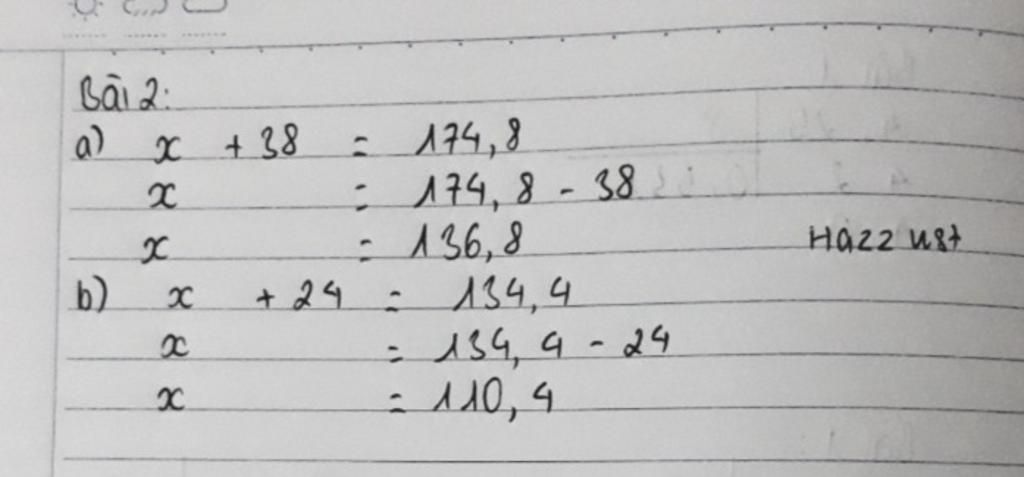 Bài 2:
a) x + 38 = 174,8
x = 174,8 - 38
x = 136,8
b) x + 24 = 134,4
x = 134,4 - 24
x = 110,4